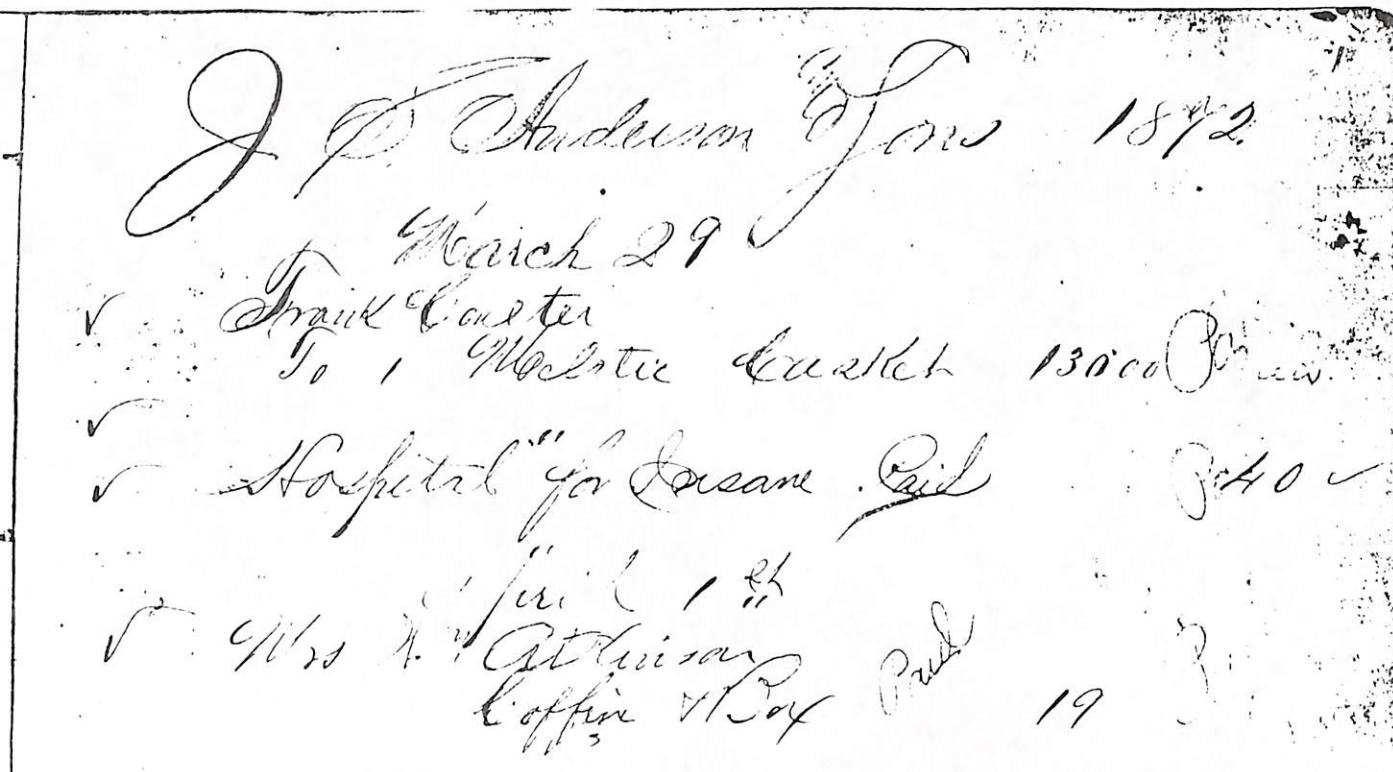 J P Anderson & Sons 1872
March 29
Frank Coulter
To 1 Casket 130 00
Hospital for Insane Paid 40
April 1
Mrs Atkinson Paid
Coffin & Box 19